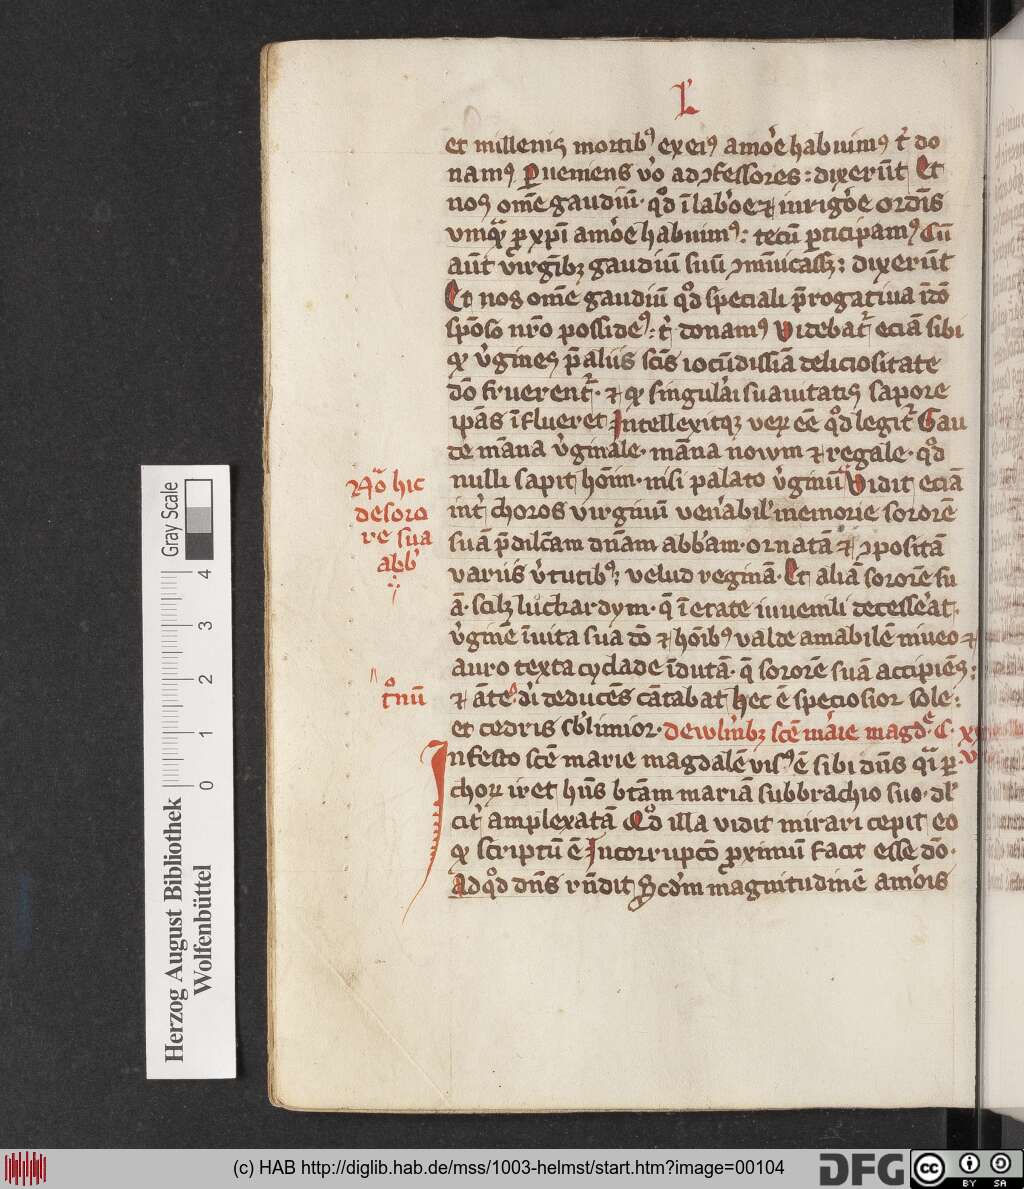 L'
et milleniſ mortibꝰ ex eiꝰ amo'e habuimꝰ t' do
namꝰ ꝑueniens v'o ad ↄfessores : dixer̄ūt Et
nos om̄e gaudiū · qd̓ ī lab'oe ⁊ in rig'oe ordīs
vnꝰqͥsqꝫ pro xp̄i amo'e habuimꝰ : tecū ꝑticipamꝰ Cū
aūt virgībꝫ gaudiū suū ↄmūicassꝫ : dixer̄ūt
Et nos om̄e gaudiū qd̓ speciali p̄rogatiua ī dō
spōso nr̄o possidemꝰ : t' donamꝰ Videbat᷑ eciā sibi
ꝙ v'gineſ p̄ aliis scīs iocūdissīa deliciositate
dō fruerent᷑ · ⁊ ꝙ singula'i suauitatis sapore
ip̄as īflueret Intellexitqꝫ veꝝ eē qd̓ legit᷑ Gau
de māna v'ginale · māna nouum ⁊ regale · qd̓
nulli sapit hoīm · nisi palato v'ginū Vidit eciā
int' choros virginū ven'abil' memorie sororē
suā p̄dilc̄am dn̄am abb'am · ornatā ⁊ ↄpositā
variis v'tutibꝰ ; velud reginā · Et aliā sororē su
ā · scilꝫ luckardym · q̄ ī etate iuuenili decesse'at ·
v'ginē ī vita sua dō ⁊ hoībꝰ valde amabilē niueo ⁊
auro texta cyclade īdutā · q̄ sororē suā accipiēs ;
⁊ ātꝰ d'i deducēs cātabat hec ē speciosior sole :
et cedris sb'limior · de wln'ibꝫ scē ma'ie magd'e C · xx
In festo scē marie magdalē visꝰ ē sibi dn̄s qͣi ꝑ
choꝝ ir et hn̄s btām mariā sub brachio suo · dl'
cit' amplexatā Qd̓ illa vidit mirari cepit eo
ꝙ scriptū ē Incorrupcō proximū facit esse dō ·
Ad qd̓ dn̄s rn̄dit Scd'm magnitudinē amo'is
Nō hic
de soro
re sua
abb'
t'nū
Gray Scale
0 1 2 3 4
Herzog August Bibliothek
Wolfenbüttel
(c) HAB http://diglib.hab.de/mss/1003-helmst/start.htm?image=00104
DFG
cc
BY SA